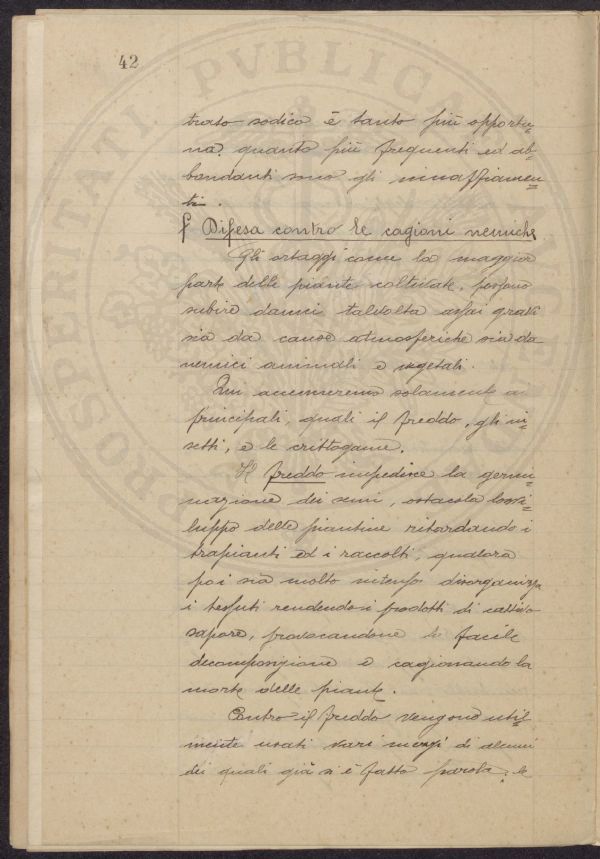 42
trato sodico è tanto più opportu-
na quanto più frequenti ed ab-
bondanti sono gli innaffiamen-
ti.
f Difesa contro le cagioni nemiche
Gli ortaggi come la maggior
parte delle piante coltivate, possono
subire danni talvolta assai gravi
sia da cause atmosferiche sia da
nemici animali e vegetali.
Qui accenneremo solamente ai
principali, quali il freddo, gli in-
setti, e le crittogame.
Il freddo impedisce la germi-
nazione dei semi, ostacola lo svi-
luppo delle piantine ritardando i
trapianti ed i raccolti, qualora
poi sia molto intenso disorganizza
i tessuti rendendo i prodotti di cattivo
sapore, provocandone la facile
decomposizione e cagionando la
morte delle piante.
Contro il freddo vengono util-
mente usati vari mezzi di alcuni
dei quali già si è fatto parola; le
PROSPERITATI PVBLICAE